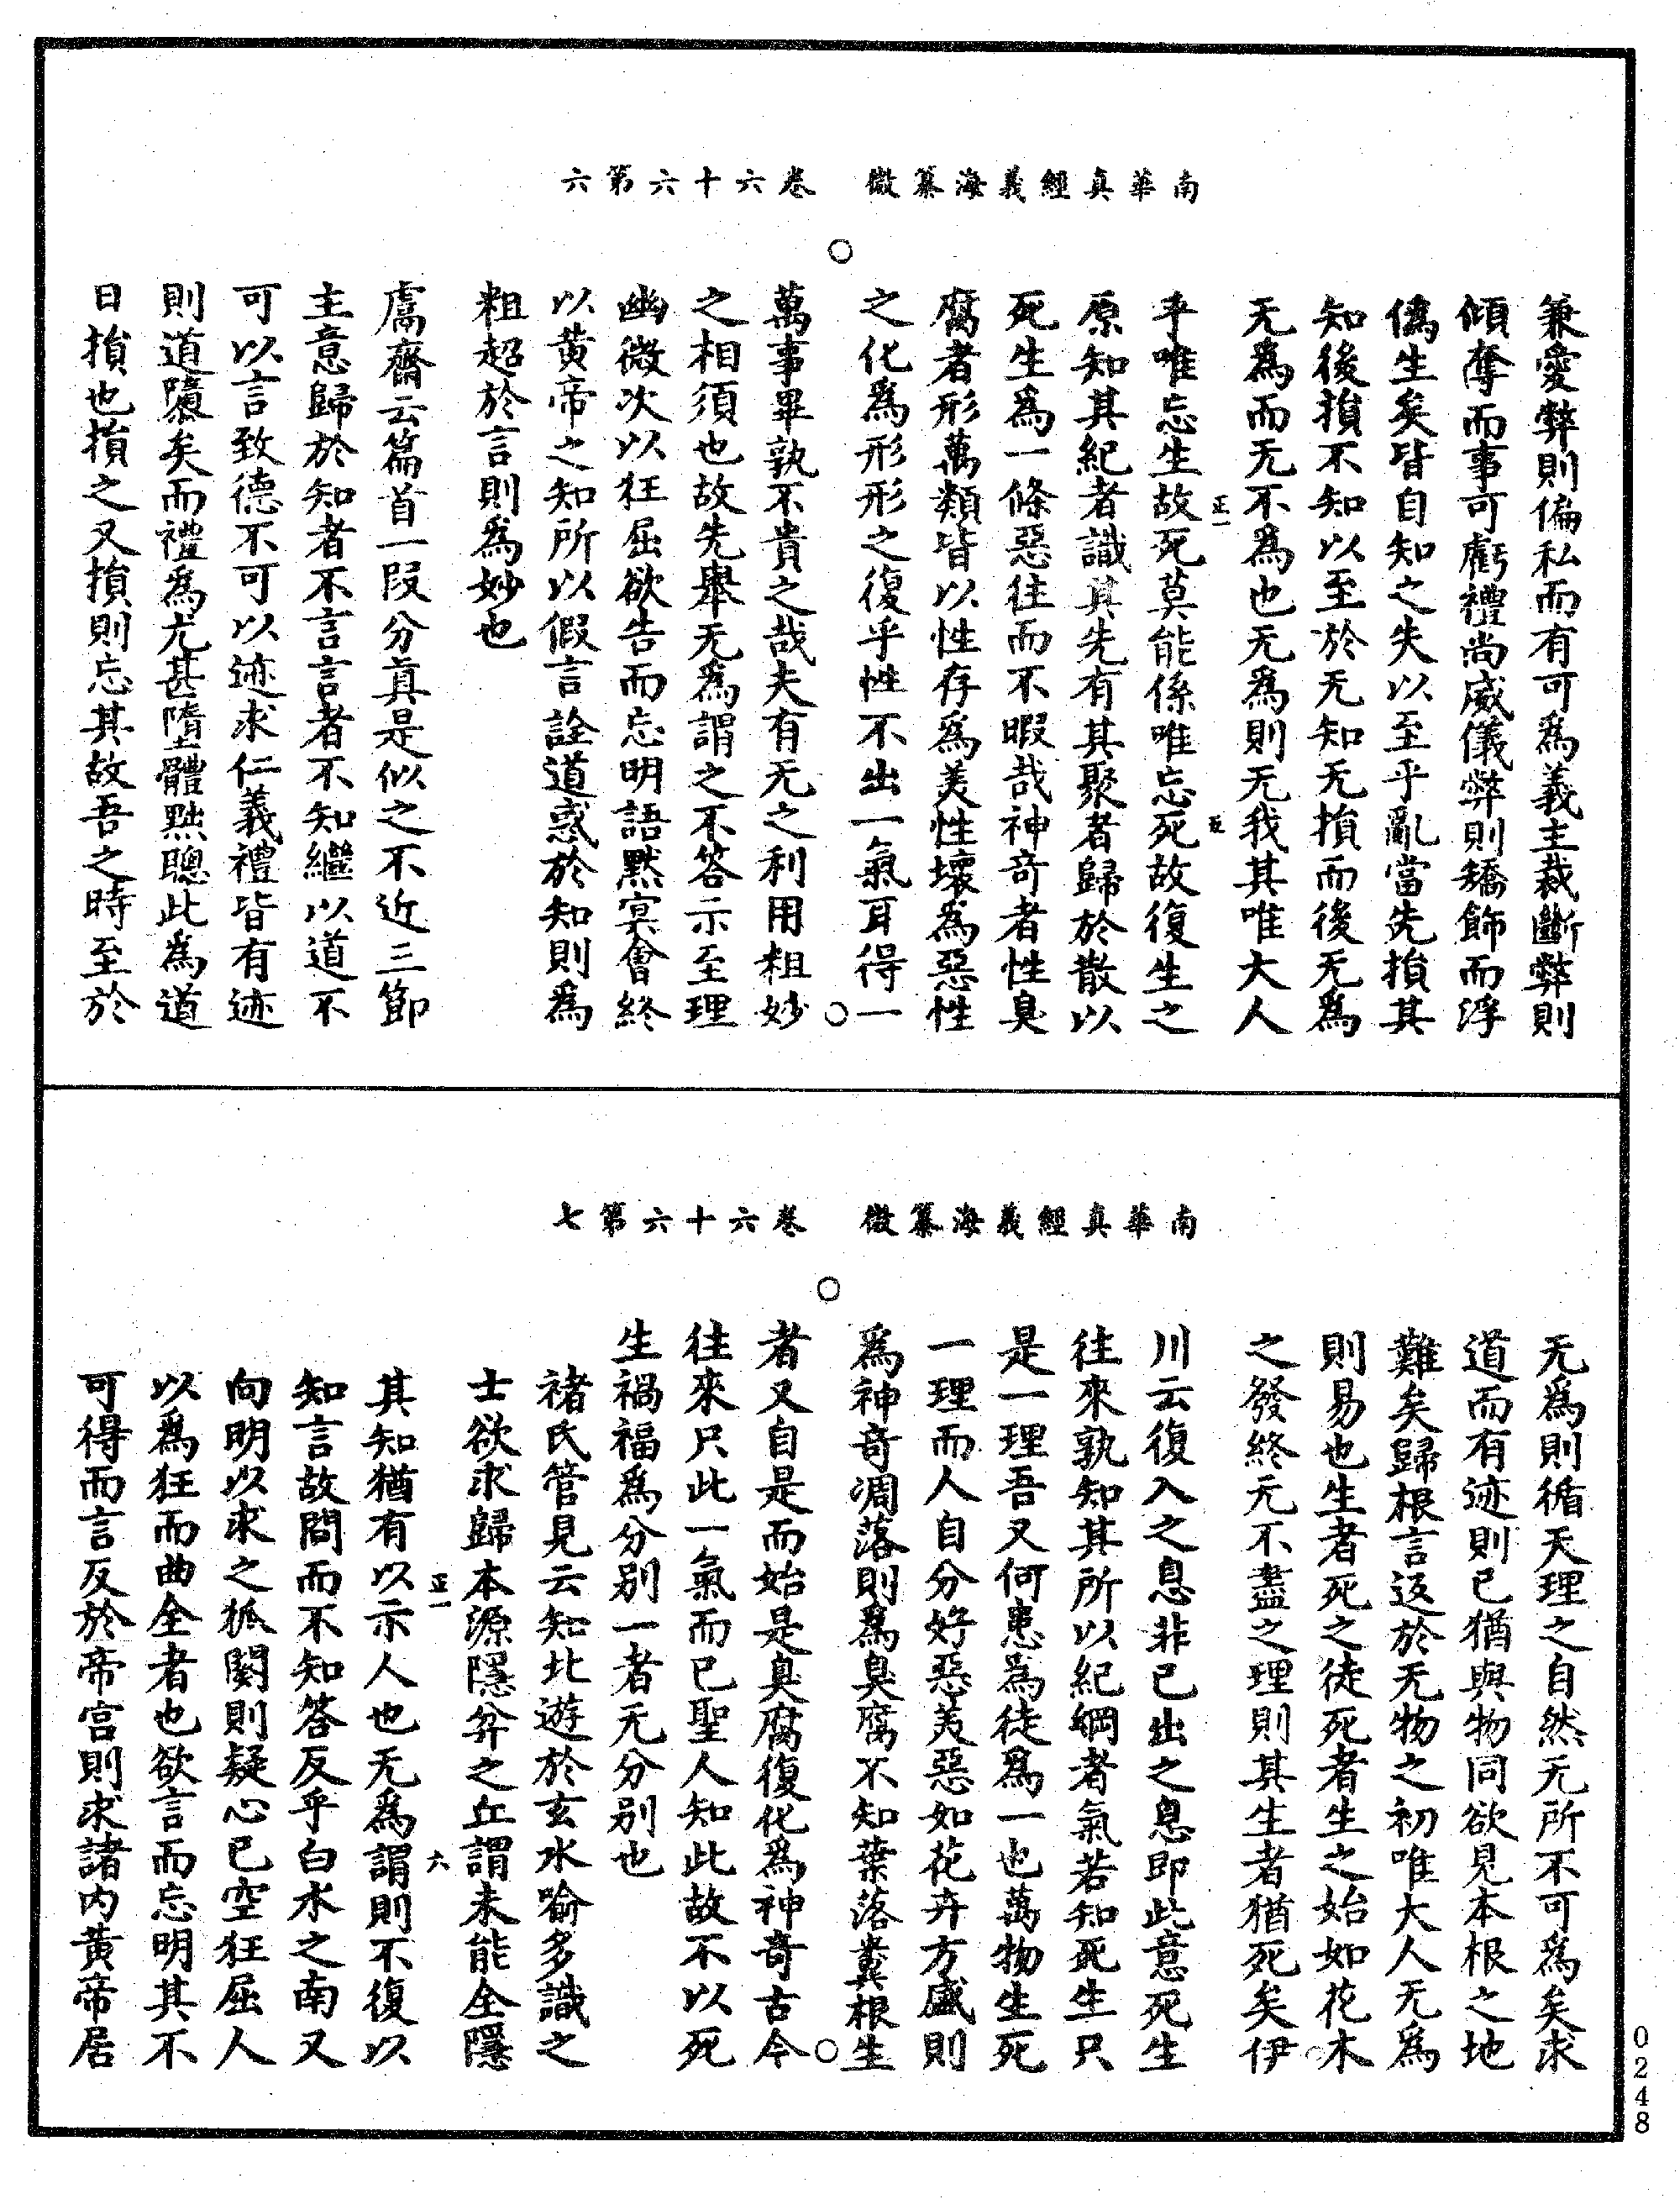 南華真經義海纂微　卷六十六第六
兼愛弊則偏私而有可爲義主裁斷弊則
傾奪而事可虧禮尚威儀弊則矯飾而浮
僞生矣皆自知之失以至乎亂當先損其
知後損不知以至於无知无損而後无爲
无爲而无不爲也无爲則无我其唯大人
乎唯忘生故死莫能係唯忘死故復生之
原知其紀者識其先有其聚者歸於散以
死生爲一條惡往而不暇哉神奇者性臭
腐者形萬類皆以性存爲美性壞爲惡性
之化爲形形之復乎性不出一氣耳得一
萬事畢孰不貴之哉夫有无之利用粗妙
之相須也故先舉无爲謂之不答示至理
幽微次以狂屈欲告而忘明語默冥會終
以黄帝之知所以假言詮道惑於知則爲
粗超於言則爲妙也
鬳齋云篇首一段分真是似之不近三節
主意歸於知者不言言者不知繼以道不
可以言致德不可以迹求仁義禮皆有迹
則道隳矣而禮爲尤甚墮體黜聰此爲道
日損也損之又損則忘其故吾之時至於
正一
南華真經義海纂微　卷六十六第七
无爲則循天理之自然无所不可爲矣求
道而有迹則已猶與物同欲見本根之地
難矣歸根言返於无物之初唯大人无爲
則易也生者死之徒死者生之始如花木
之發終无不盡之理則其生者猶死矣伊
川云復入之息非已出之息即此意死生
往來孰知其所以紀綱者氣若知死生只
是一理吾又何患爲徒爲一也萬物生死
一理而人自分好惡美惡如花卉方盛則
爲神奇凋落則爲臭腐不知葉落糞根生
者又自是而始是臭腐復化爲神奇古今
往來只此一氣而已聖人知此故不以死
生禍福爲分别一者无分别也
褚氏管見云知北遊於玄水喻多識之
士欲求歸本源隱弅之丘謂未能全隱
其知猶有以示人也无爲謂則不復以
知言故問而不知答反乎白水之南又
向明以求之狐闋則疑心已空狂屈人
以爲狂而曲全者也欲言而忘明其不
可得而言反於帝宫則求諸内黄帝居
正一　六
0248